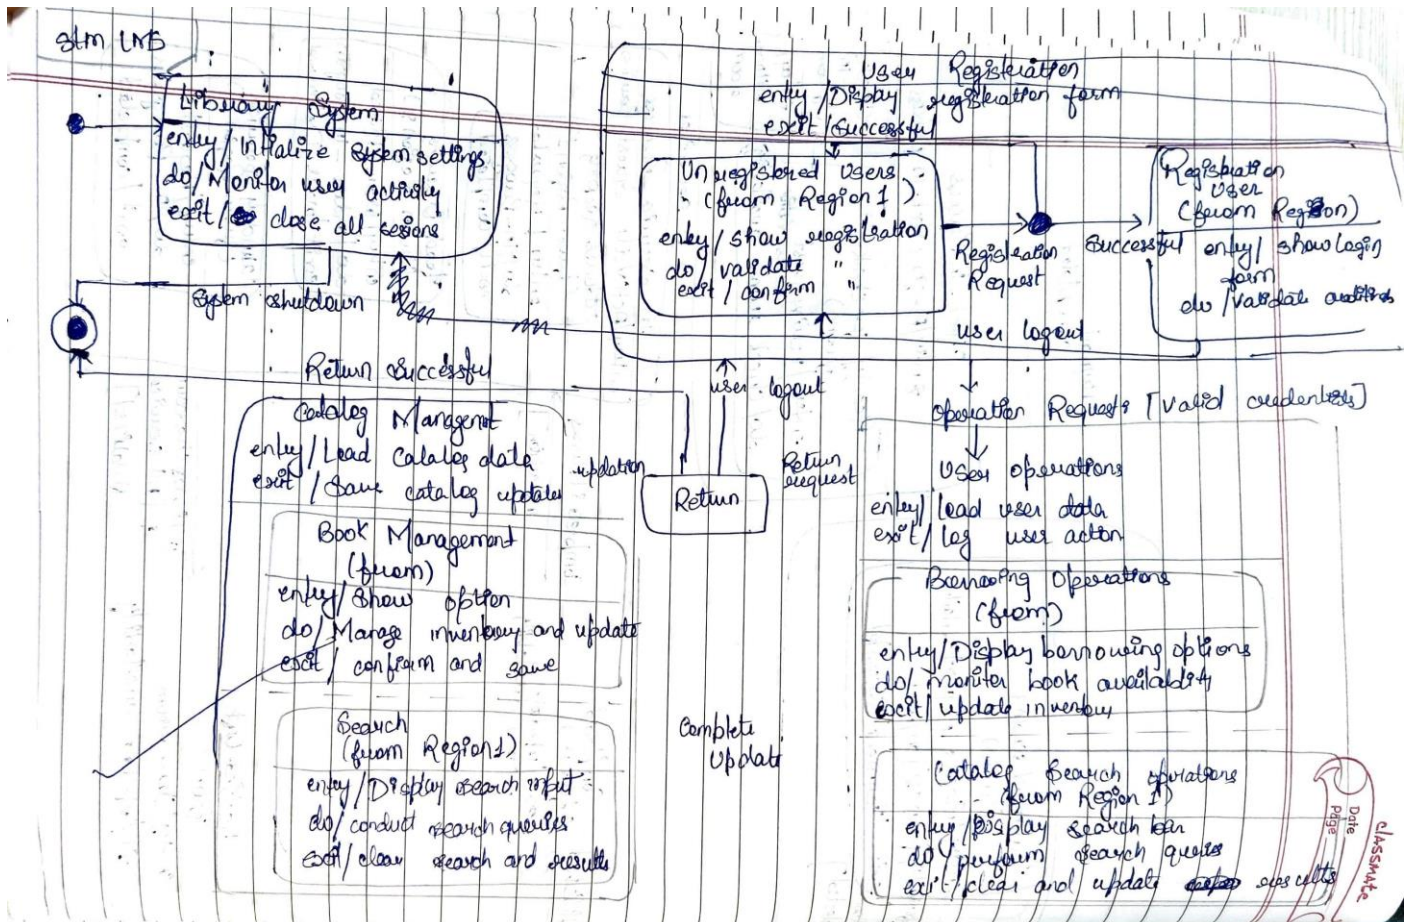 stm LMS
Library System
entry/Intialize System settings
do/Monitor user activity
exit/ close all sesions
System shutdown
User Registeration
entry/Display registeration form
exit/Successful
Unregistered Users
(from Region 1)
entry/show registration
do/validate "
exit/confirm "
Registeration
Request
Successful
Registration
User
(from Region)
entry/show login
form
do/validate
user logout
Return Successful
user logout
Return
Return
request
updation
Catalog Managemt
entry/Load Catalog data
exit/Save catalog updates
Book Management
(from)
entry/Show option
do/Manage inventory and update
exit/confirm and save
Search
(from Region1)
entry/Display search input
do/conduct search queries
exit/clear search and results
Complete
Update
Operation Requests [valid credentials]
User operations
entry/Load user data
exit/log user action
Borrowing Operations
(from)
entry/Display borrowing options
do/monitor book availability
exit/update inventory
Catalog Search operations
(from Region 1)
entry/Display search bar
do/perform search queris
exit/clear and update results
classmate
Date
Page